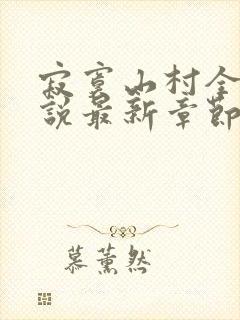 寂寞山村全
說最新章節
慕薰然